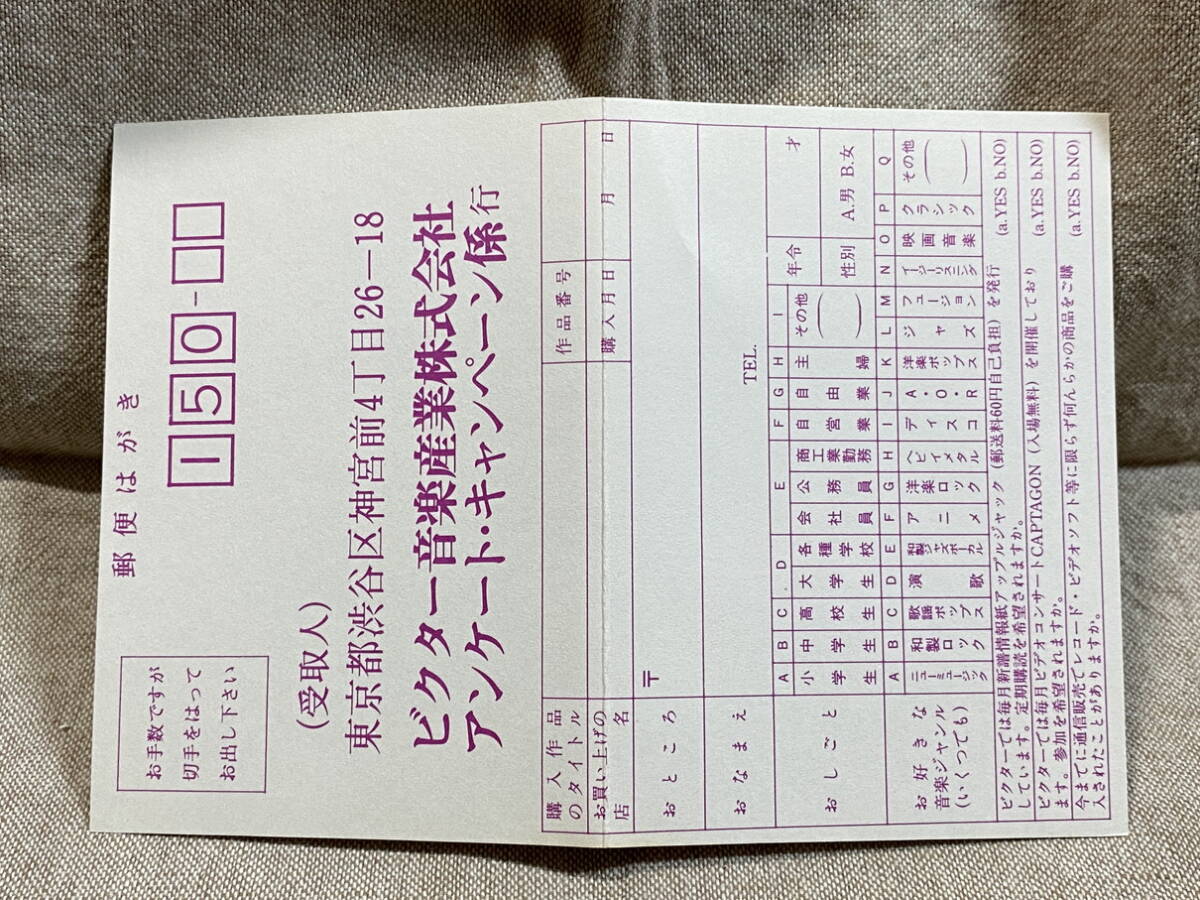 郵便はがき
150-
お手数ですが
切手をはって
お出し下さい
(受取人)
東京都渋谷区神宮前4丁目26－18
ビクター音楽産業株式会社
アンケート・キャンペーン係行
購入作品のタイトル
作品番号
お買い上げの店名
購入月日 月 日
おところ
〒
TEL.
おなまえ
おしごと
A 小学生
B 中学生
C 高校生
D 大学生 各種学校
E 会社員 公務員 商工業勤務
F 自営業
G 自由業
H 主婦
I その他( )
年令 才
性別 A.男 B.女
お好きな
音楽ジャンル
(いくつでも)
A ニューミュージック
B 和製ロック
C 歌謡ポップス
D 演歌
E 和製ジャズボーカル
F アニメ
G 洋楽ロック
H ヘビィメタル
I ディスコ
J A・O・R
K 洋楽ポップス
L ジャズ
M フュージョン
N イージーリスニング
O 映画音楽
P クラシック
Q その他( )
ビクターでは毎月新譜情報紙アップルジャック(郵送料60円自己負担)を発行
しています。定期購読を希望されますか。 (a.YES b.NO)
ビクターでは毎月ビデオコンサートCAPTAGON(入場無料)を開催しており
ます。参加を希望されますか。 (a.YES b.NO)
今までに通信販売でレコード・ビデオソフト等に限らず何んらかの商品をご購
入されたことがありますか。 (a.YES b.NO)